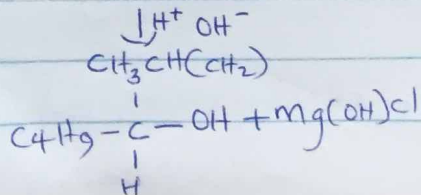 H⁺ OH⁻
CH₃CH(CH₂)
C₄H₉-C-OH + Mg(OH)Cl
H